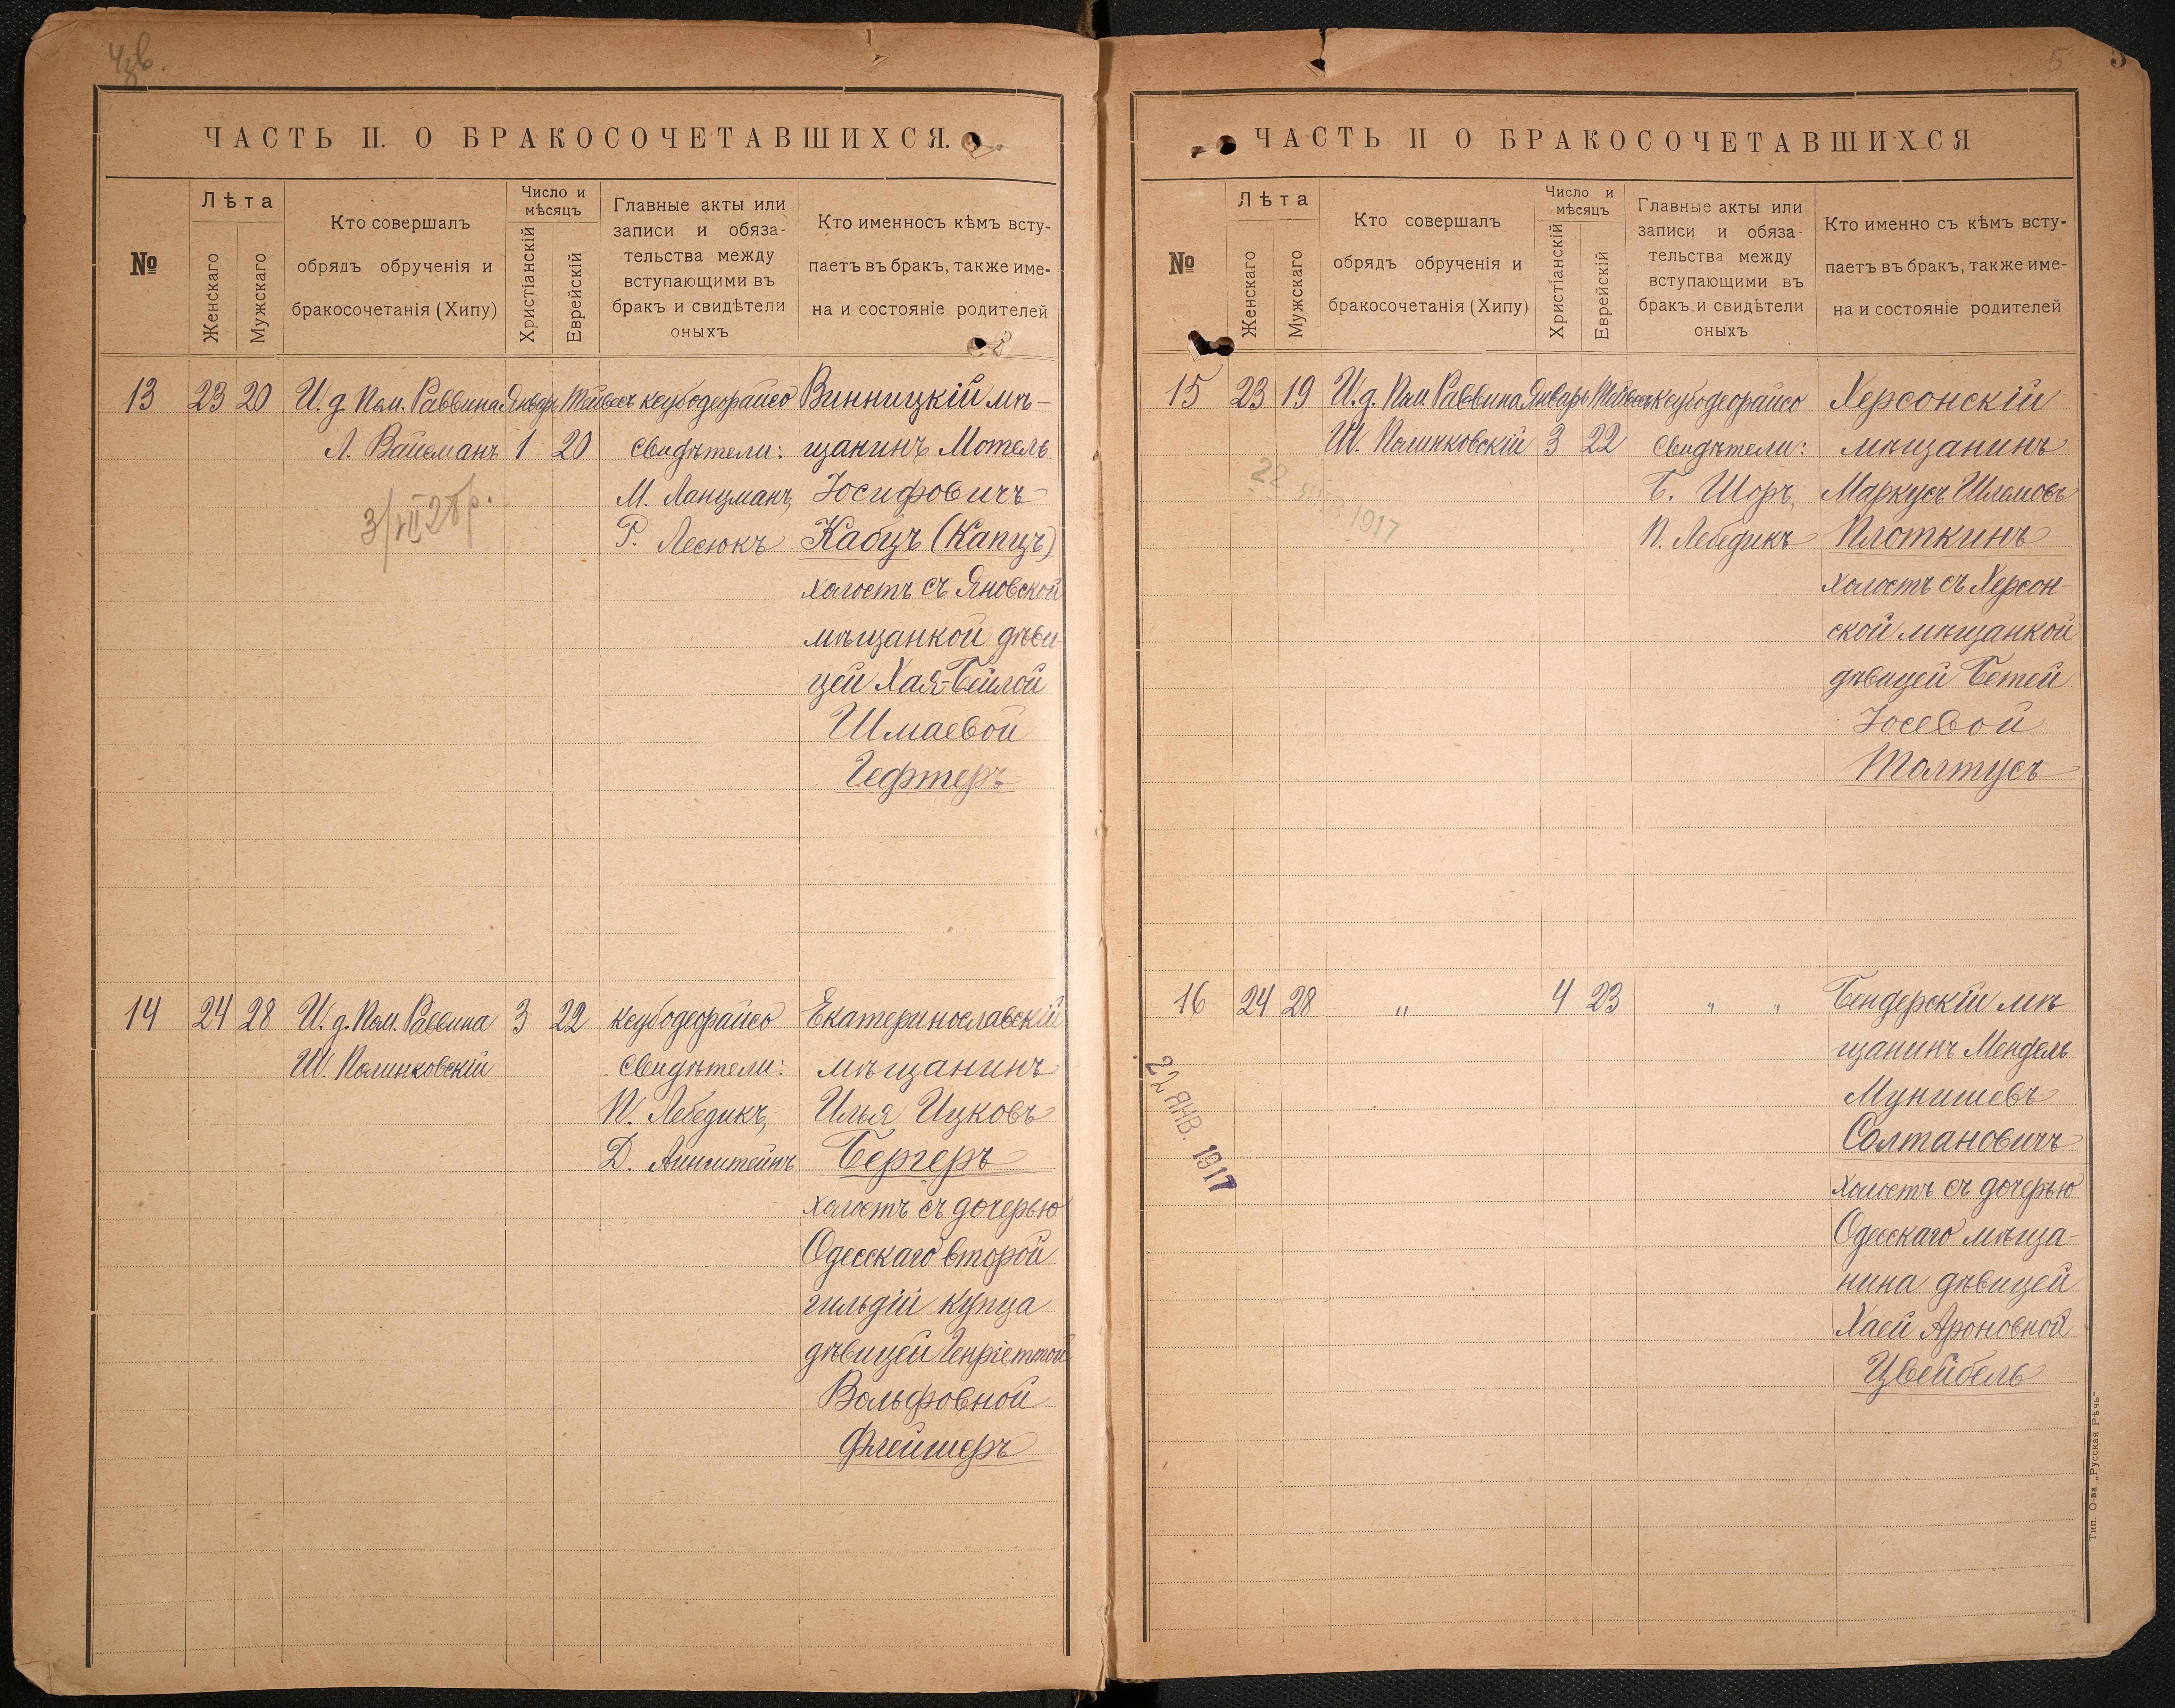 ЧАСТЬ II. О БРАКОСОЧЕТАВШИХСЯ.
№
Лѣта
Женскаго
Мужскаго
Кто совершалъ
обрядъ обрученія и
бракосочетанія (Хипу)
Число и
мѣсяцъ
Христіанскій
Еврейскій
Главные акты или
записи и обяза-
тельства между
вступающими въ
бракъ и свидѣтели
оныхъ
Кто именносъ кѣмъ всту-
паетъ въ бракъ, также име-
на и состояніе родителей
13 23 20
И. д. Пом. Раввина
Л. Вайсманъ
Январь
1
Тейвесъ
20
Ксубодеорайсо
Свидѣтели:
М. Ланцманъ,
Г. Лесюкъ
Винницкій мѣ-
щанинъ Мотель
Іосифовичъ
Кабцъ (Капцъ)
холостъ съ Яновской
мѣщанкой дѣви-
цей Хая-Бейлой
Шмаевой
Гефтеръ
14 24 28
И. д. Пом. Раввина
Ш. Полинковскій
3 22
Ксубодеорайсо
Свидѣтели:
П. Лебедикъ,
Д.
Екатеринославскій
мѣщанинъ
Илья Ицковъ
Бергеръ
холостъ съ дочерью
Одесскаго второй
гильдіи купца
дѣвицей Генріеттой
Вольфовной
Флейшеръ
5
ЧАСТЬ II О БРАКОСОЧЕТАВШИХСЯ
№
Лѣта
Женскаго
Мужскаго
Кто совершалъ
обрядъ обрученія и
бракосочетанія (Хипу)
Число и
мѣсяцъ
Христіанскій
Еврейскій
Главные акты или
записи и обяза-
тельства между
вступающими въ
бракъ и свидѣтели
оныхъ
Кто именно съ кѣмъ всту-
паетъ въ бракъ, также име-
на и состояніе родителей
15 23 19
И. д. Пом. Раввина
Ш. Полинковскій
Январь
3
Тейвесъ
22
Ксубодеорайсо
Свидѣтели:
Б. Шоръ,
П. Лебедикъ
Херсонскій
мѣщанинъ
Маркусъ Шлемовъ
Плоткинъ
холостъ съ Херсон-
ской мѣщанкой
дѣвицей Бетей
Іосевой
Толтусъ
22 ЯНВ 1917
16 24 28 " 4 23 " "
Бендерскій мѣ
щанинъ Мендель
Мунишевъ
Солтановичъ
холостъ съ дочерью
Одесскаго мѣща-
нина дѣвицей
Хаей Ароновной
Цвейбель
22 ЯНВ. 1917
Тип. О-ва „Русская Рѣчь"